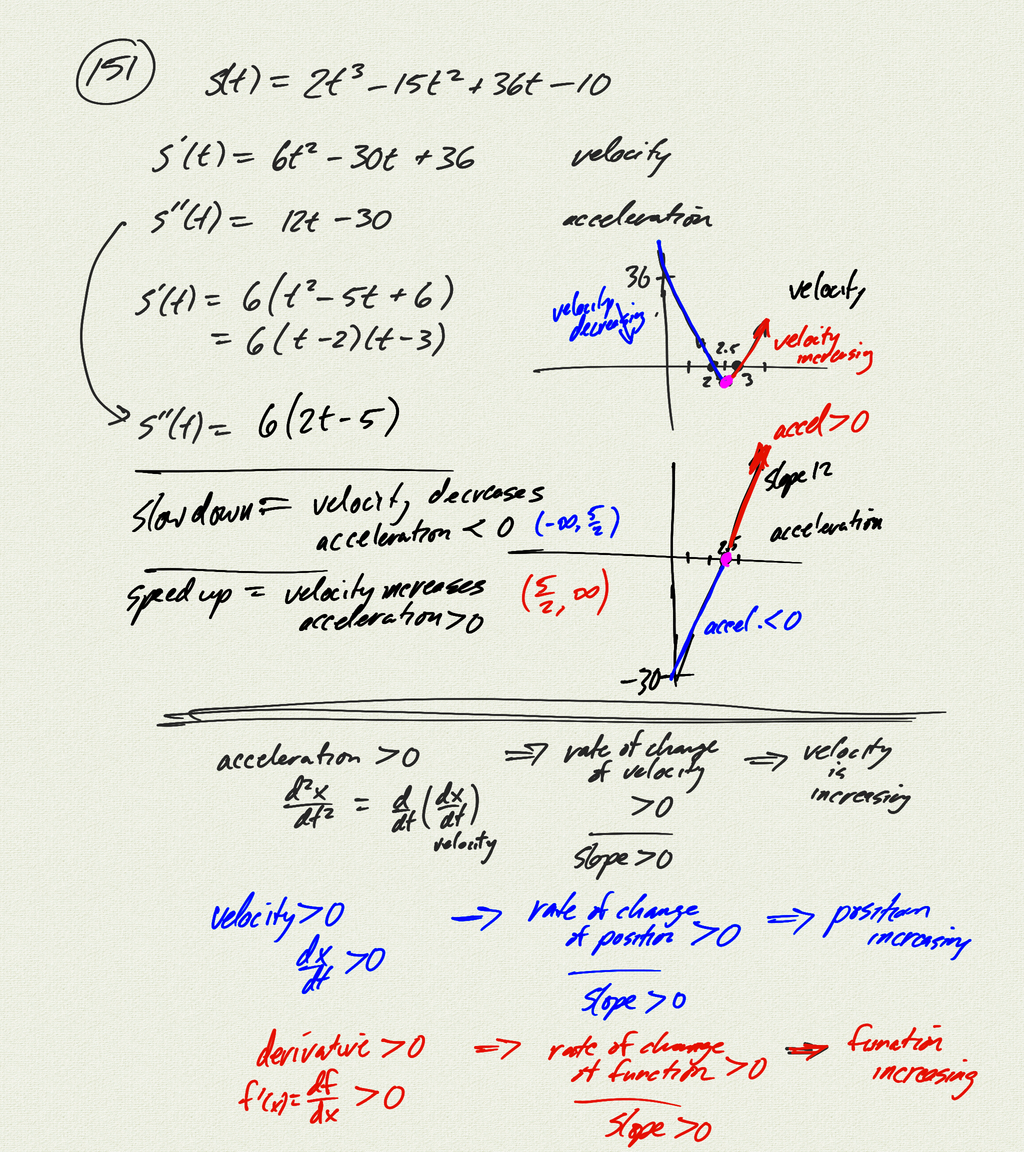 151
s(t) = 2t³ - 15t² + 36t - 10
s'(t) = 6t² - 30t + 36 velocity
s''(t) = 12t - 30 acceleration
s'(t) = 6(t² - 5t + 6)
= 6(t-2)(t-3)
s''(t) = 6(2t-5)
36
velocity
velocity
decreasing
velocity
increasing
2.5
2 3
accel>0
slope 12
acceleration
2.5
accel.<0
-30
slow down = velocity decreases
acceleration < 0 (-∞, 5/2)
speed up = velocity increases
acceleration>0 (5/2, ∞)
acceleration >0 ⇒ rate of change of velocity >0 ⇒ velocity is increasing
d²x/dt² = d/dt (dx/dt)
velocity
slope >0
velocity>0 ⇒ rate of change of position >0 ⇒ position increasing
dx/dt >0
slope >0
derivative >0 ⇒ rate of change of function >0 ⇒ function increasing
f'(x) = df/dx >0
slope >0